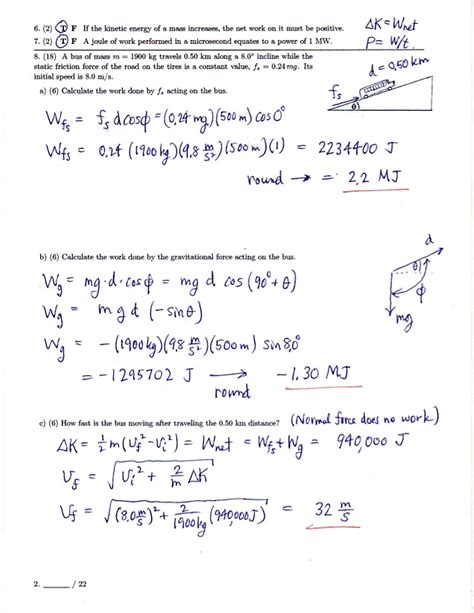 6. (2) (T) F If the kinetic energy of a mass increases, the net work on it must be positive. ΔK = Wnet
7. (2) (T) F A joule of work performed in a microsecond equates to a power of 1 MW. P = W/t
8. (18) A bus of mass m = 1900 kg travels 0.50 km along a 8.0° incline while the
static friction force of the road on the tires is a constant value, fₛ = 0.24 mg. Its
initial speed is 8.0 m/s.
d = 0,50 km
fₛ
θ
a) (6) Calculate the work done by fₛ acting on the bus.
W_fs = fₛ d cosϕ = (0,24 mg)(500 m) cos 0°
W_fs = 0,24 (1900 kg)(9,8 m/s²)(500 m)(1) = 2234400 J
round → = 2.2 MJ
b) (6) Calculate the work done by the gravitational force acting on the bus.
d
θ
ϕ
mg
W_g = mg·d·cosϕ = mg d cos (90°+θ)
W_g = mg d (-sinθ)
W_g = -(1900 kg)(9,8 m/s²)(500 m) sin 8,0°
= -1295702 J → -1.30 MJ
round
c) (6) How fast is the bus moving after traveling the 0.50 km distance? (Normal force does no work)
ΔK = ½ m (v_f² - v_i²) = Wnet = W_fs + W_g = 940,000 J
v_f = √(v_i² + 2/m ΔK)
v_f = √((8.0 m/s)² + 2/1900 kg (940,000 J)) = 32 m/s
2. ______ / 22